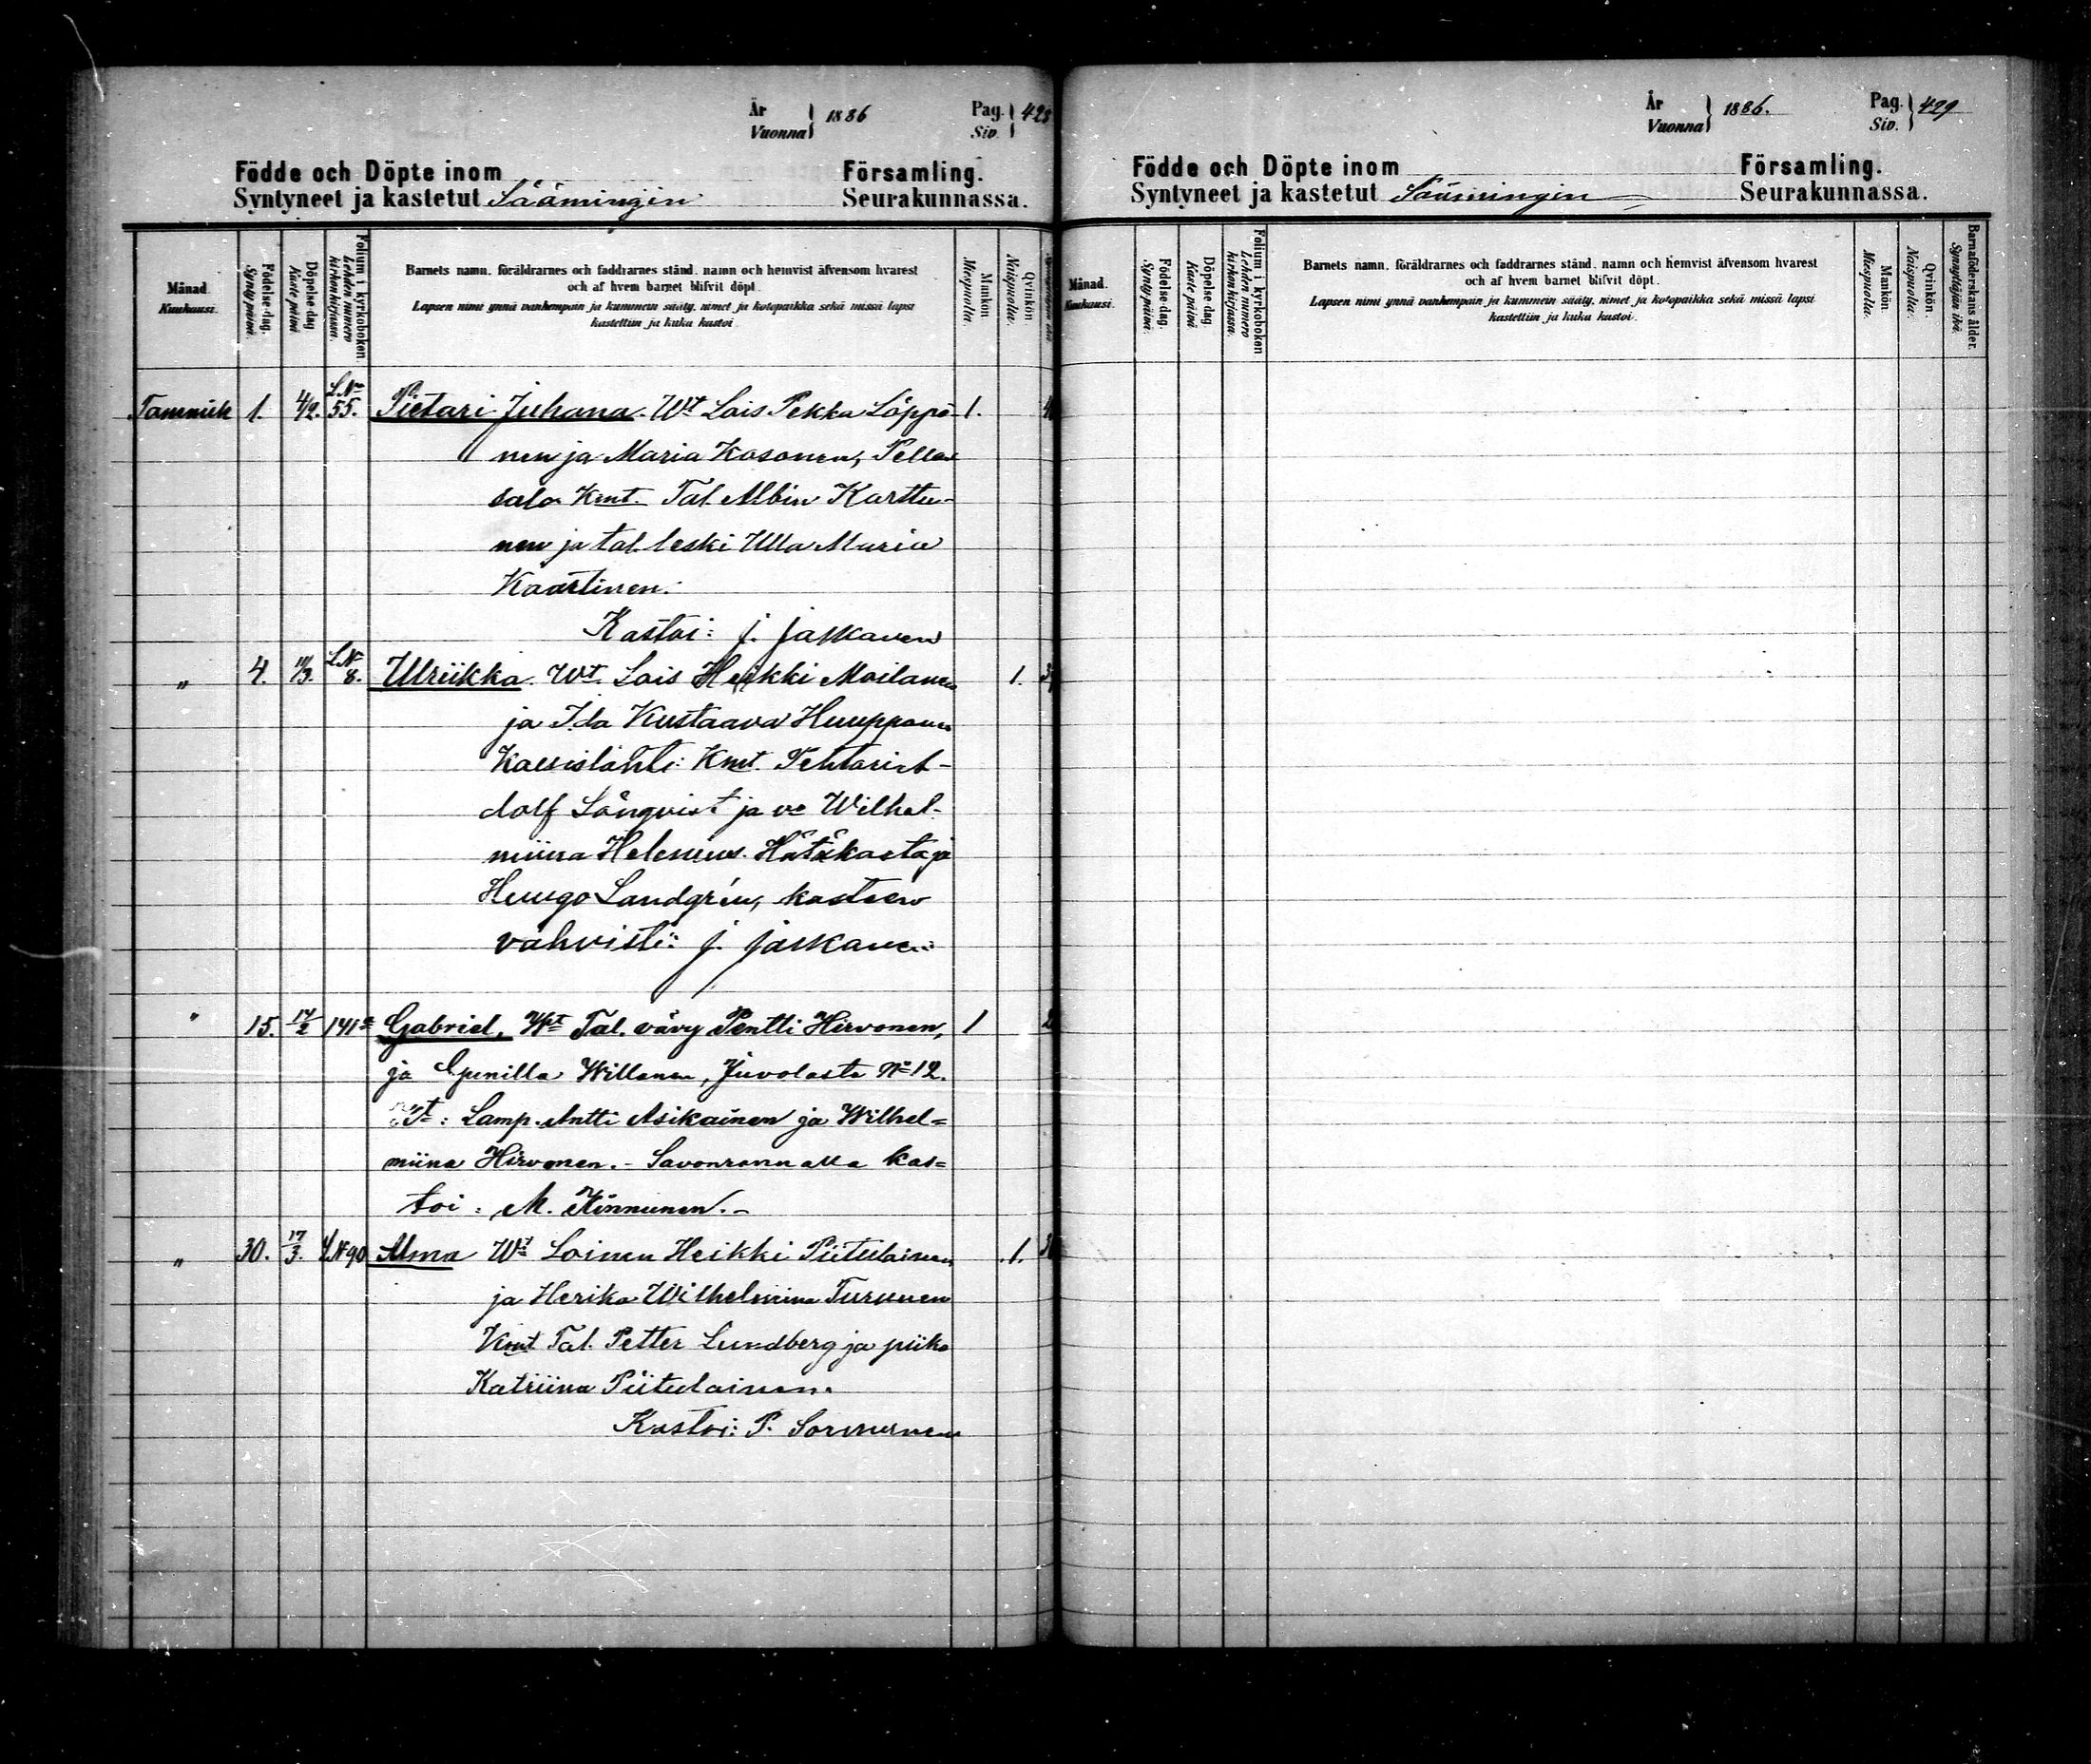 År Vuonna } 1886 Pag. Siv. } 428
Födde och Döpte inom Församling.
Syntyneet ja kastetut Säämingin Seurakunnassa.
Månad. Kuukausi.
Födelse-dag. Synty-päivä.
Döpelse-dag. Kaste-päivä.
Folium i kyrkoboken. Lehden numero kirkonkirjassa.
Barnets namn, föräldrarnes och faddrarnes stånd, namn och hemvist äfvensom hvarest
och af hvem barnet blifvit döpt.
Lapsen nimi ynnä vanhempain ja kummein sääty, nimet ja kotopaikka sekä missä lapsi
kastettiin ja kuka kastoi.
Mankön. Miespuolia.
Qvinkön. Naispuolia.
Tammik 1. 4/2. L.No 55. Pietari Juhana. Wt Lois Pekka Löppö- 1.
nen ja Maria Kosonen, Pellos
salo Kmt. Tal. Albin Karttu-
nen ja tal. leski Ulla Maria
Kaartinen.
Kastoi: J. Jaskanen
" 4. L.No 8. Ulriikka. Wt. Lois Heikki Moilanen 1.
ja Ida Kustaava Huupponen
Kmt.
dolf Lönqvist ja vo Wilhel-
miina Helenius. Hätäkastaja
Huugo Landgrén, kasteen
vahvisti: J. Jaskanen
" 15. 14/2 141 Gabriel. Wt Tal. vävy Pentti Hirvonen, 1
ja Gunilla Willanen, Juvolasta No 12.
Lamp. Antti Asikainen ja Wilhel=
miina Hirvonen. - Savonrannalla kas=
toi: M. Kinnunen. -
" 30. 17/3. L.No 90 Alma Wt Loinen Heikki Piitulainen 1.
ja Herika Wilhelmiina Turunen
Kmt Tal. Petter Lundberg ja piika
Katriina Piitulainen.
Kastoi: P. Sormunen
År Vuonna } 1886. Pag. Siv. } 429
Födde och Döpte inom Församling.
Syntyneet ja kastetut Säämingin Seurakunnassa.
Månad. Kuukausi.
Födelse-dag. Synty-päivä.
Döpelse-dag. Kaste-päivä.
Folium i kyrkoboken. Lehden numero kirkonkirjassa.
Barnets namn, föräldrarnes och faddrarnes stånd, namn och hemvist äfvensom hvarest
och af hvem barnet blifvit döpt.
Lapsen nimi ynnä vanhempain ja kummein sääty, nimet ja kotopaikka sekä missä lapsi
kastettiin ja kuka kastoi.
Mankön. Miespuolia.
Qvinkön. Naispuolia.
Barnaföderskans ålder. Synnyttäjän ikä.